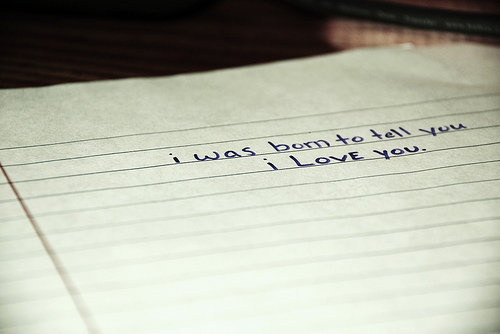 i was born to tell you
i LOVE you.